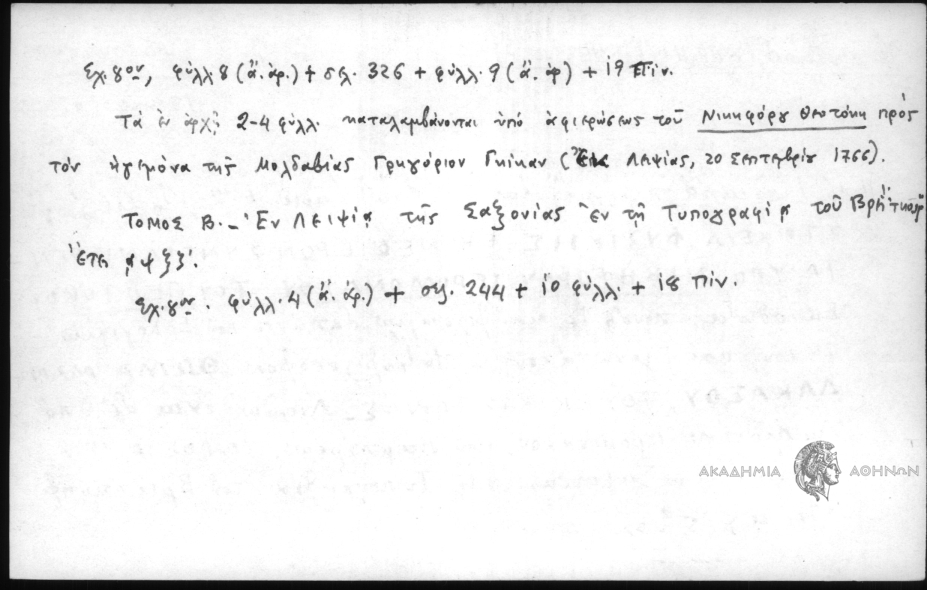 Σχ. 8ον, φύλλ 8 (ἄ. ἀρ.) + σελ. 326 + φύλλ. 9 (ἄ. ἀρ) + 19 πίν.
Τὰ ἐν ἀρχῇ 2-4 φύλλ. καταλαμβάνονται ὑπὸ ἀφιερώσεως τοῦ Νικηφόρου Θεοτόκη πρὸς
τὸν ἡγεμόνα τῆς Μολδαβίας Γρηγόριον Γκίκαν (Ἐκ Λειψίας, 20 Σεπτεβρίου 1766).
ΤΟΜΟΣ Β. - Ἐν Λειψίᾳ τῆς Σαξονίας ἐν τῇ Τυπογραφίᾳ τοῦ
Ἔτει ͵αψξζ'.
Σχ. 8ον. φύλλ. 4 (ἄ. ἀρ.) + σελ. 244 + 10 φύλλ. + 18 πίν.
ΑΚΑΔΗΜΙΑ ΑΘΗΝΩΝ